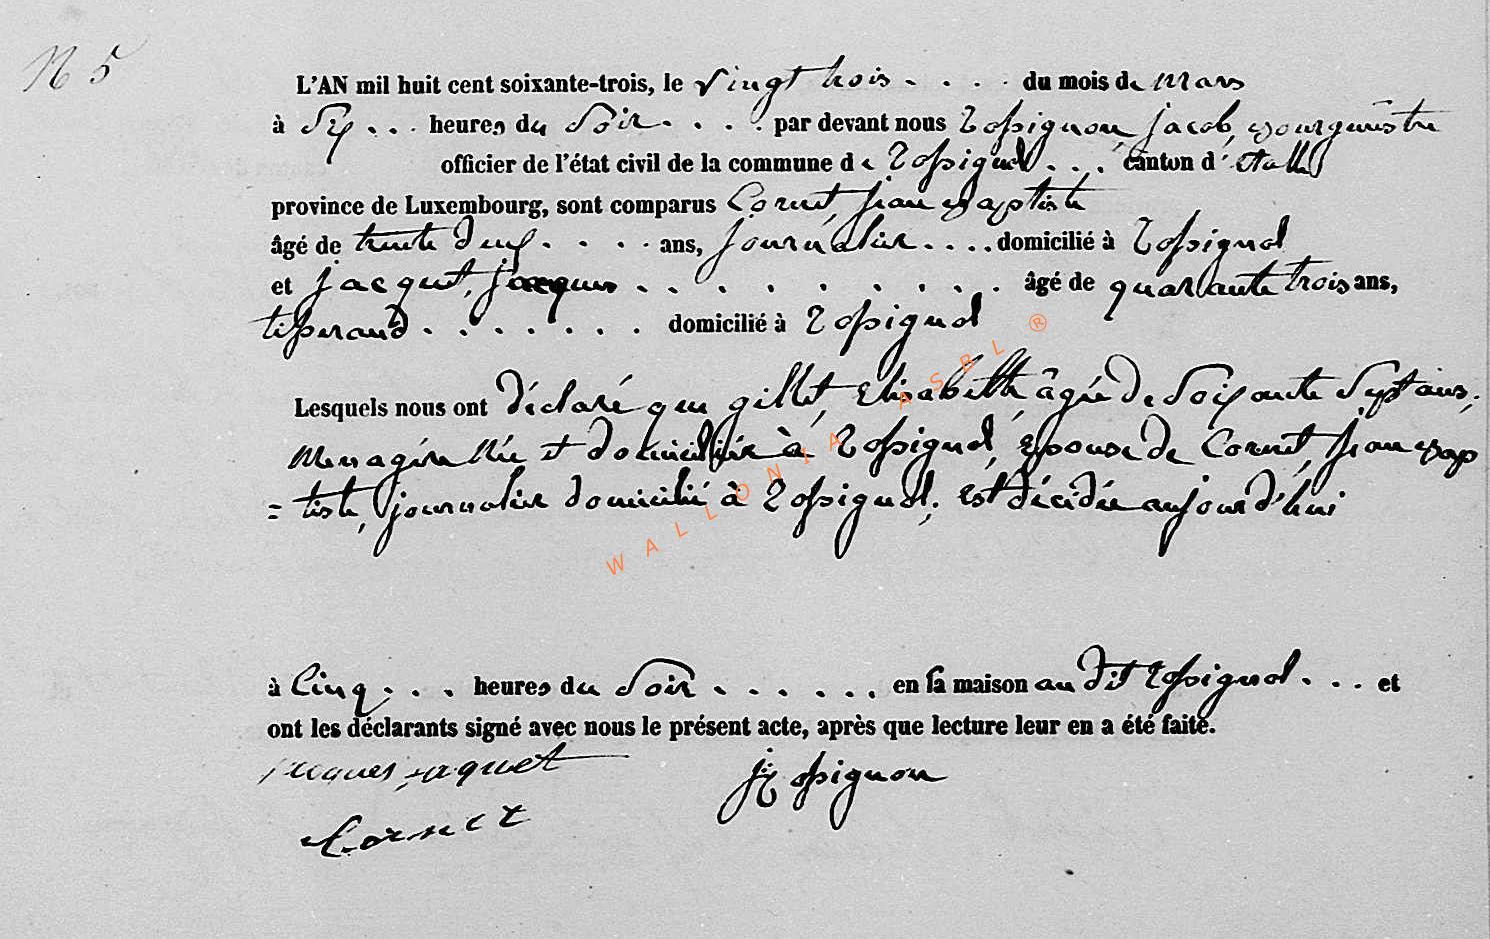 N 5
L'AN mil huit cent soixante-trois, le vingt trois . . . . du mois de mars
à Six . . . heures du Soir . . . . par devant nous Rossignon, Jacob, Bourgmestre
officier de l'état civil de la commune de Rossignol . . . canton d'Etalle
province de Luxembourg, sont comparus Cornet, Jean Baptiste
âgé de trente deux . . . . ans, Journalier . . . . domicilié à Rossignol
et Jacquet, Jacques . . . . . . . . . âgé de quarante trois ans,
tisserand . . . . . . . domicilié à Rossignol
Lesquels nous ont déclaré que gillet, Elisabeth, âgée de Soixante Sept ans,
Menagère Née et domiciliée à Rossignol, Epouse de Cornet, Jean Bap
= tiste, journalier domicilié à Rossignol, est décédée aujourd'hui
à Cinq . . . heures du Soir . . . . . . en sa maison au dit Rossignol . . . et
ont les déclarants signé avec nous le présent acte, après que lecture leur en a été faite.
jacques jaquet
J Rossignon
Cornet
WALLONIA ASBL ®